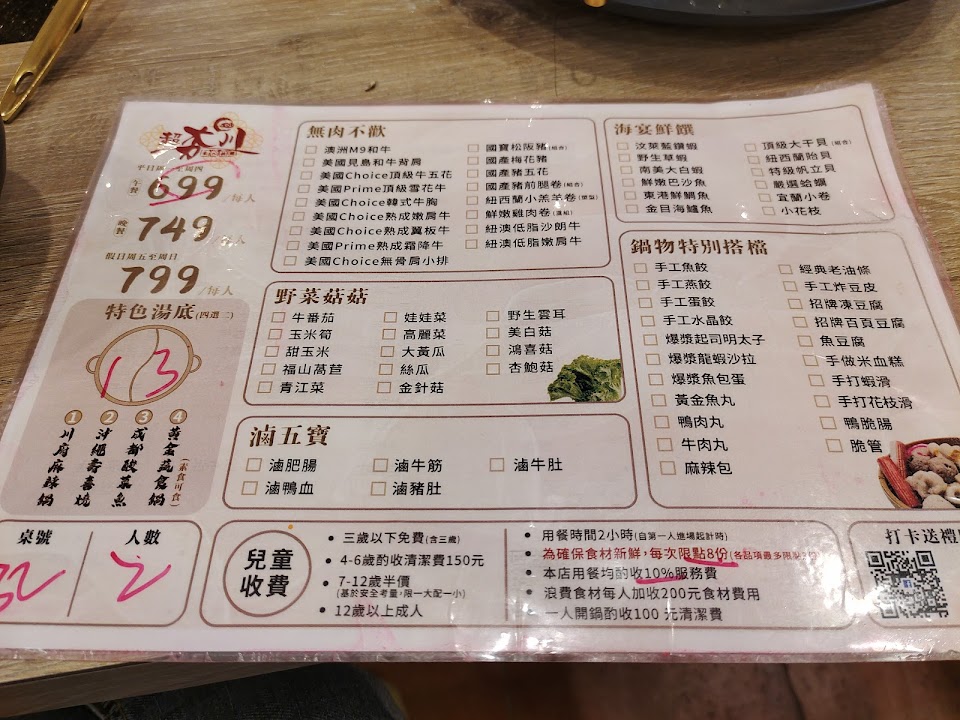 平日
午餐 699/每人
晚餐 749/每人
假日周五至周日
799/每人
特色湯底(四選二)
1 3
① 川府麻辣鍋
② 沙繩壽喜燒
③ 成都酸菜魚
④ 黃金蔬食鍋(素食可食)
無肉不歡
澳洲M9和牛
美國見島和牛背肩
美國Choice頂級牛五花
美國Prime頂級雪花牛
美國Choice韓式牛胸
美國Choice熟成嫩肩牛
美國Choice熟成翼板牛
美國Prime熟成霜降牛
美國Choice無骨肩小排
國產松阪豬
國產梅花豬
國產豬五花
國產豬前腿卷
紐西蘭小羔羊卷
鮮嫩雞肉卷
紐澳低脂沙朗牛
紐澳低脂嫩肩牛
海宴鮮饌
汶萊藍鑽蝦
野生草蝦
南美大白蝦
鮮嫩巴沙魚
東港鮮鯛魚
金目海鱸魚
頂級大干貝
紐西蘭貽貝
特級帆立貝
嚴選蛤蠣
宜蘭小卷
小花枝
野菜菇菇
牛番茄
玉米筍
甜玉米
福山萵苣
青江菜
娃娃菜
高麗菜
大黃瓜
絲瓜
金針菇
野生雲耳
美白菇
鴻喜菇
杏鮑菇
鍋物特別搭檔
手工魚餃
手工燕餃
手工蛋餃
手工水晶餃
爆漿起司明太子
爆漿龍蝦沙拉
爆漿魚包蛋
黃金魚丸
鴨肉丸
牛肉丸
麻辣包
經典老油條
手工炸豆皮
招牌凍豆腐
招牌百頁豆腐
魚豆腐
手做米血糕
手打蝦滑
手打花枝滑
鴨脆腸
脆管
滷五寶
滷肥腸
滷牛筋
滷牛肚
滷鴨血
滷豬肚
桌號
人數
2
兒童收費
• 三歲以下免費(含三歲)
• 4-6歲酌收清潔費150元
• 7-12歲半價
(基於安全考量,限一大配一小)
• 12歲以上成人
• 用餐時間2小時(自第一人進場起計時)
• 為確保食材新鮮,每次限點8份
• 本店用餐均酌收10%服務費
• 浪費食材每人加收200元食材費用
• 一人開鍋酌收100 元清潔費
打卡送禮